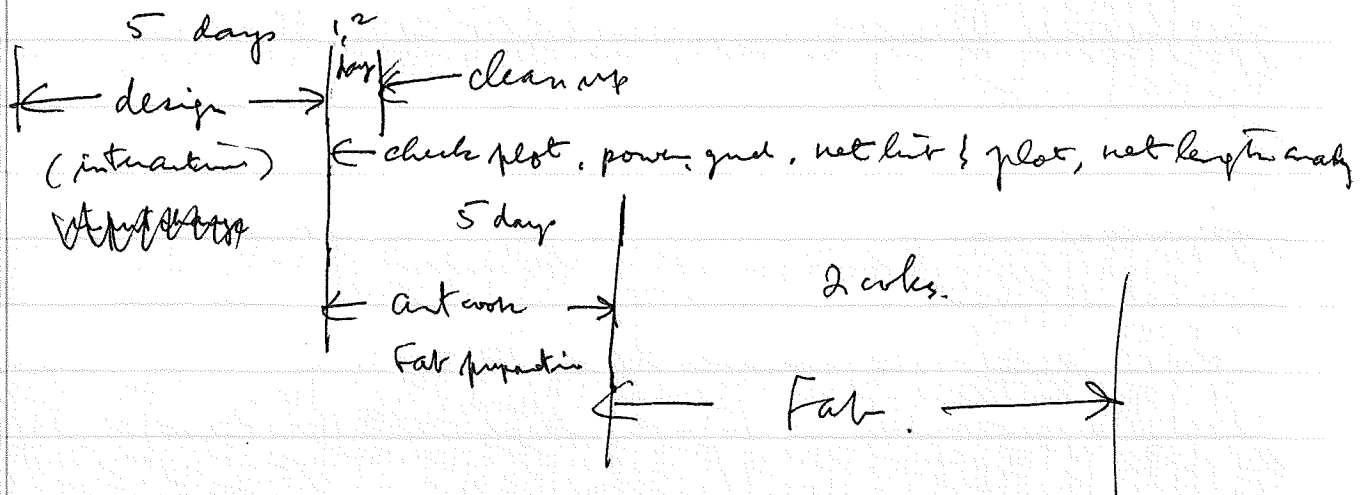 5 days 1,2
days clean up
design
(interactive) check plot, power, gnd, net list & plot, net length analy
5 days
2 wks.
artwork
Fab preparation
Fab.